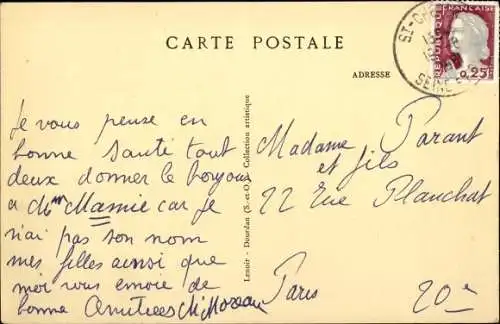 CARTE POSTALE
ADRESSE
REPUBLIQUE FRANCAISE
0,25
ST-CH
SEINE
Je vous pense en
bonne santé tout
deux donner le bonjour
a Mme Mamie car je
n'ai pas son nom
mes filles ainsi que
moi vous envoie de
bonne Amitiees M Moreau
Lenoir - Dourdan (S.-et-O.) - Collection artistique
Madame Parant
et fils
22 Rue Planchat
Paris 20e